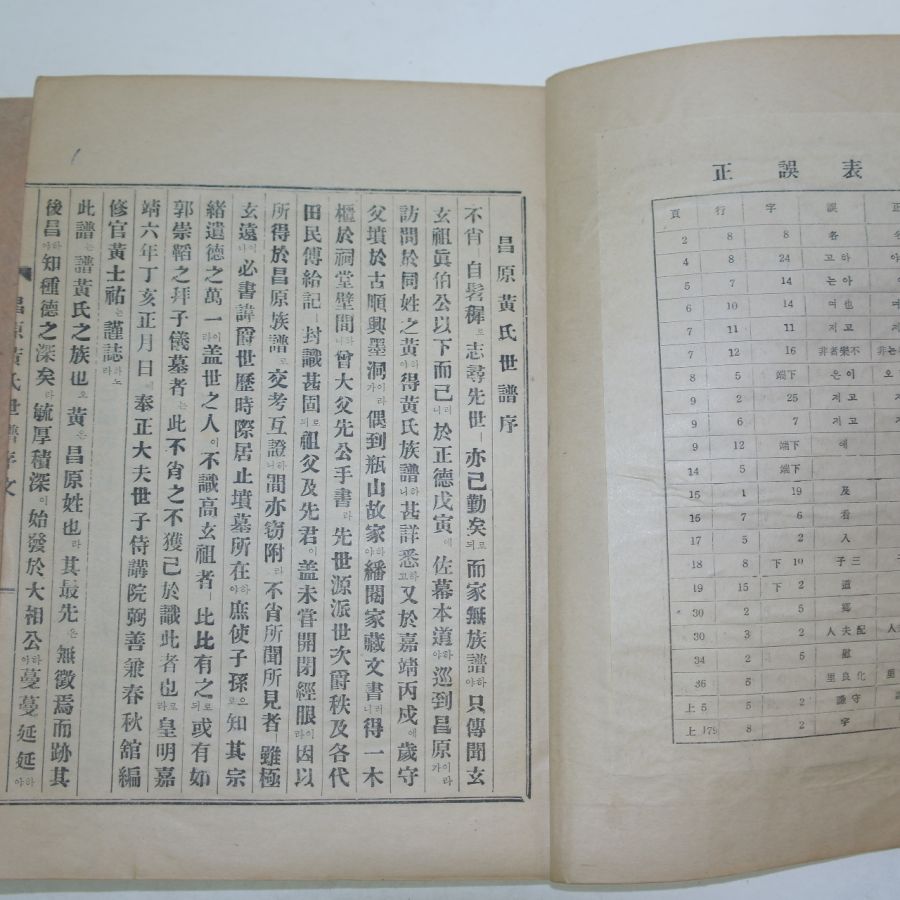 昌原黃氏世譜序
不肖 自髫穉로 志尋先世ㅣ 亦已勤矣로되 而家無族譜하야 只傳聞玄
玄祖眞伯公以下而已러니 於正德戊寅에 佐幕本道하야 巡到昌原이라가
訪問於同姓之黃하야 得黃氏族譜하니 甚詳悉하고 又於嘉靖丙戌에 歲守
父墳於古順興墨洞이라가 偶到瓶山故家하야 繙閱家藏文書러니 得一木
櫃於祠堂壁間하니 曾大父先公手書라 先世源派世次爵秩及各代
田民傳給記ㅣ 封識甚固로되 祖父及先君이 盖未嘗開閉經眼이라 因以
所得於昌原族譜로 交考互證하니 間亦窃附라 不肖所聞所見者 雖極
玄遠이나 必書諱爵世歷時際居止墳墓所在하야 庶使子孫으로 知其宗
緖遺德之萬一이라 盖世之人이 不識高玄祖者ㅣ 比比有之로되 或有如
郭崇韜之拜子儀墓者는 此不肖之不獲已於識此者也로라 皇明嘉
靖六年丁亥正月日에 奉正大夫世子侍講院弼善兼春秋舘編
修官黃士祐는 謹誌하노라
此譜는 譜黃氏之族也오 黃은 昌原姓也라 其最先은 無徵焉而跡其
後昌하야 知種德之深矣라 毓厚積深이 始發於大相公하야 蔓蔓延延하야
昌原黃氏世譜序文
正誤表
頁 行 字 誤 正
2 8 8 各
4 8 24 하고
5 7 14 아는
6 10 14 여也
7 11 11 고지
7 12 16 不樂者非
8 5 下端 이은
9 2 25 고지
9 6 7 고지
9 12 下端 에
14 5 下端
15 1 19 及
16 7 6 看
17 5 2 入
18 8 下 10 三子
19 15 下 2 道
30 2 5 鄕
30 3 2 配夫人
34 2 5 慰
36 5 化良里
上 5 5 2 守謙
上 179 8 2 字